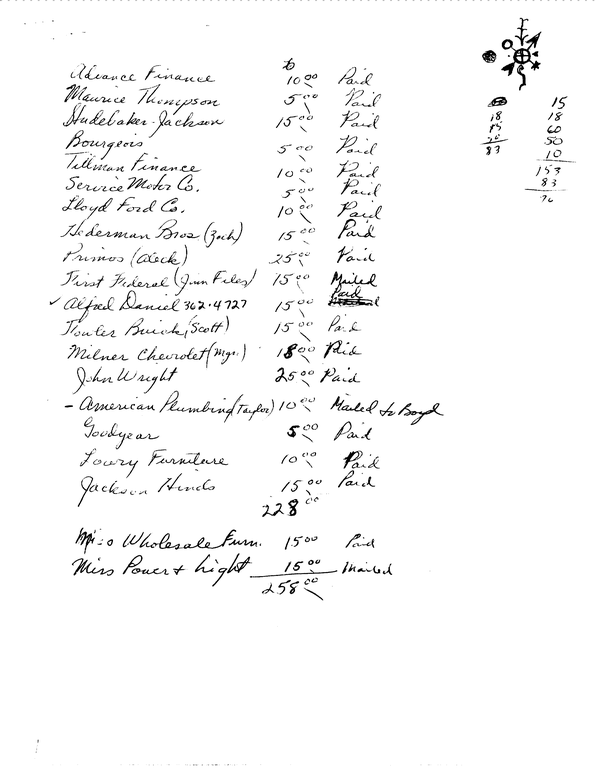 Advance Finance 10 00 Paid
Maurice Thompson 5 00 Paid
Studebaker-Jackson 15 00 Paid
Bourgeois 5 00 Paid
Tillman Finance 10 00 Paid
Service Motor Co. 5 00 Paid
Lloyd Ford Co. 10 00 Paid
Hederman Bros (Zach) 15 00 Paid
Primos (Aleck) 25 00 Paid
First Federal (Jim Files) 15 00 Mailed
✓ Alfred Daniel 362-4727 15 00 Paid
Fowler Buick (Scott) 15 00 Paid
Milner Chevrolet (Mgr.) 18 00 Paid
John Wright 25 00 Paid
- American Plumbing (Taylor) 10 00 Mailed to Boyd
Goodyear 5 00 Paid
Lowry Furniture 10 00 Paid
Jackson Hinds 15 00 Paid
228 00
Wholesale Furn. 15 00 Paid
Miss Power + Light 15 00 Mailed
258 00
15
18 18
60
50
83 10
153
83